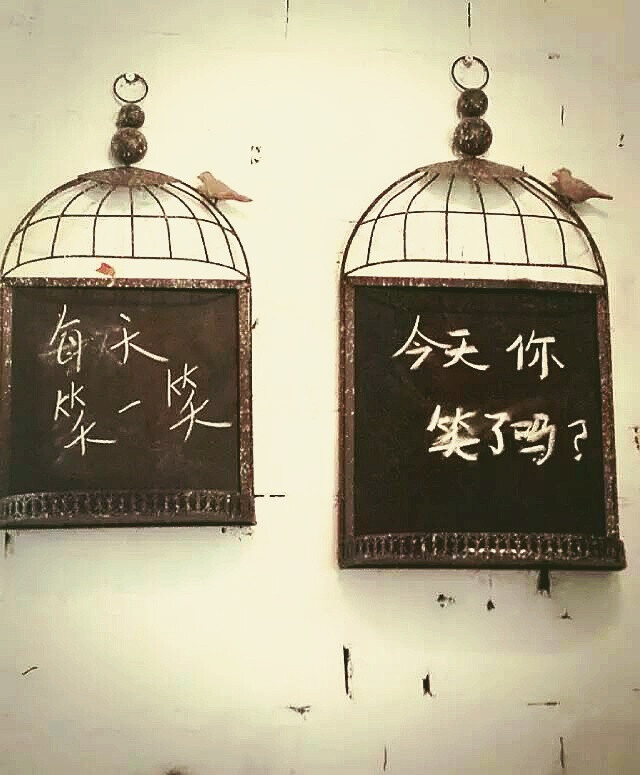 每天
笑一笑
今天你
笑了吗?